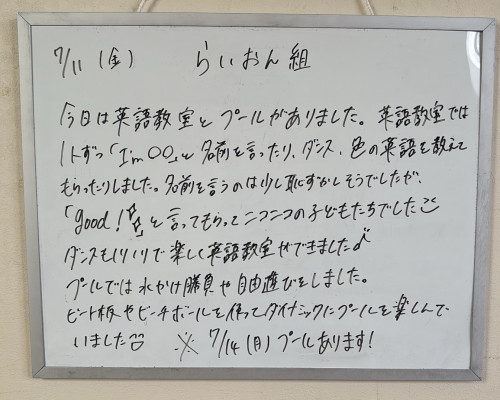 7/11 (金) らいおん組
今日は英語教室とプールがありました。英語教室では
1人ずつ「I'm ○○」と名前を言ったり、ダンス、色の英語を教えて
もらったりしました。名前を言うのは少し恥ずかしそうでしたが、
「good!☆」と言ってもらってニコニコの子どもたちでした
ダンスもノリノリで楽しく英語教室ができました♪
プールでは水かけ勝負や自由遊びをしました。
ビート板やビーチボールを使ってダイナミックにプールを楽しんで
いました ※ 7/14 (月) プールあります!